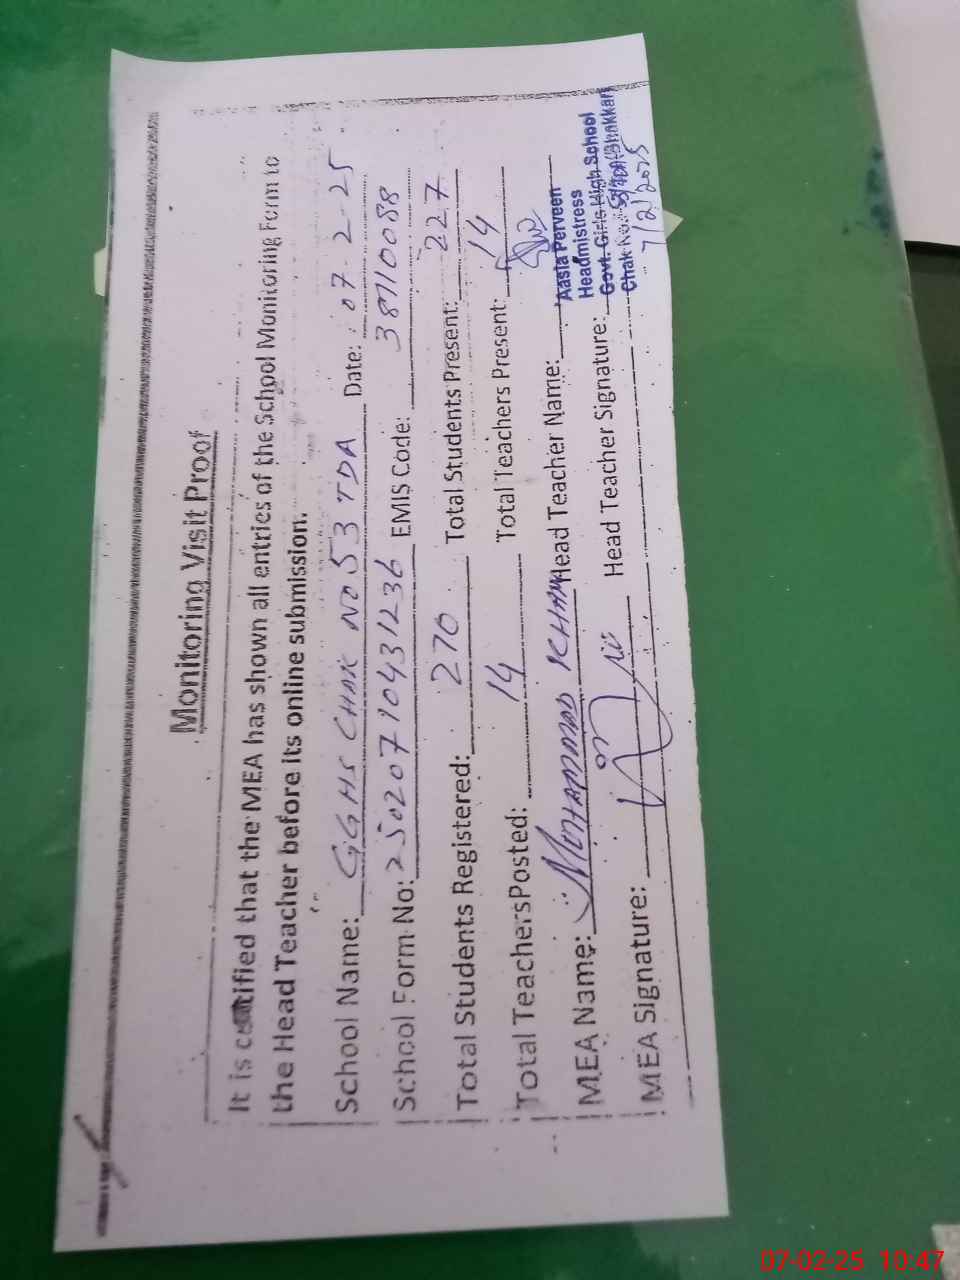 Monitoring Visit Proof
It is certified that the MEA has shown all entries of the School Monitoring Form to
the Head Teacher before its online submission.
School Name: GGHS CHAK NO 53 TDA Date: 07-2-25
School Form No: 25020710431236 EMIS Code: 38710088
Total Students Registered: 270 Total Students Present: 227
Total Teachers Posted: 14 Total Teachers Present: 14
MEA Name: MUHAMMAD KHAN Head Teacher Name: Aasia Perveen
Headmistress
MEA Signature: Head Teacher Signature: Govt. Girls High School
Chak No. 53/TDA (Bhakkar)
7/2/2025
07-02-25 10:47